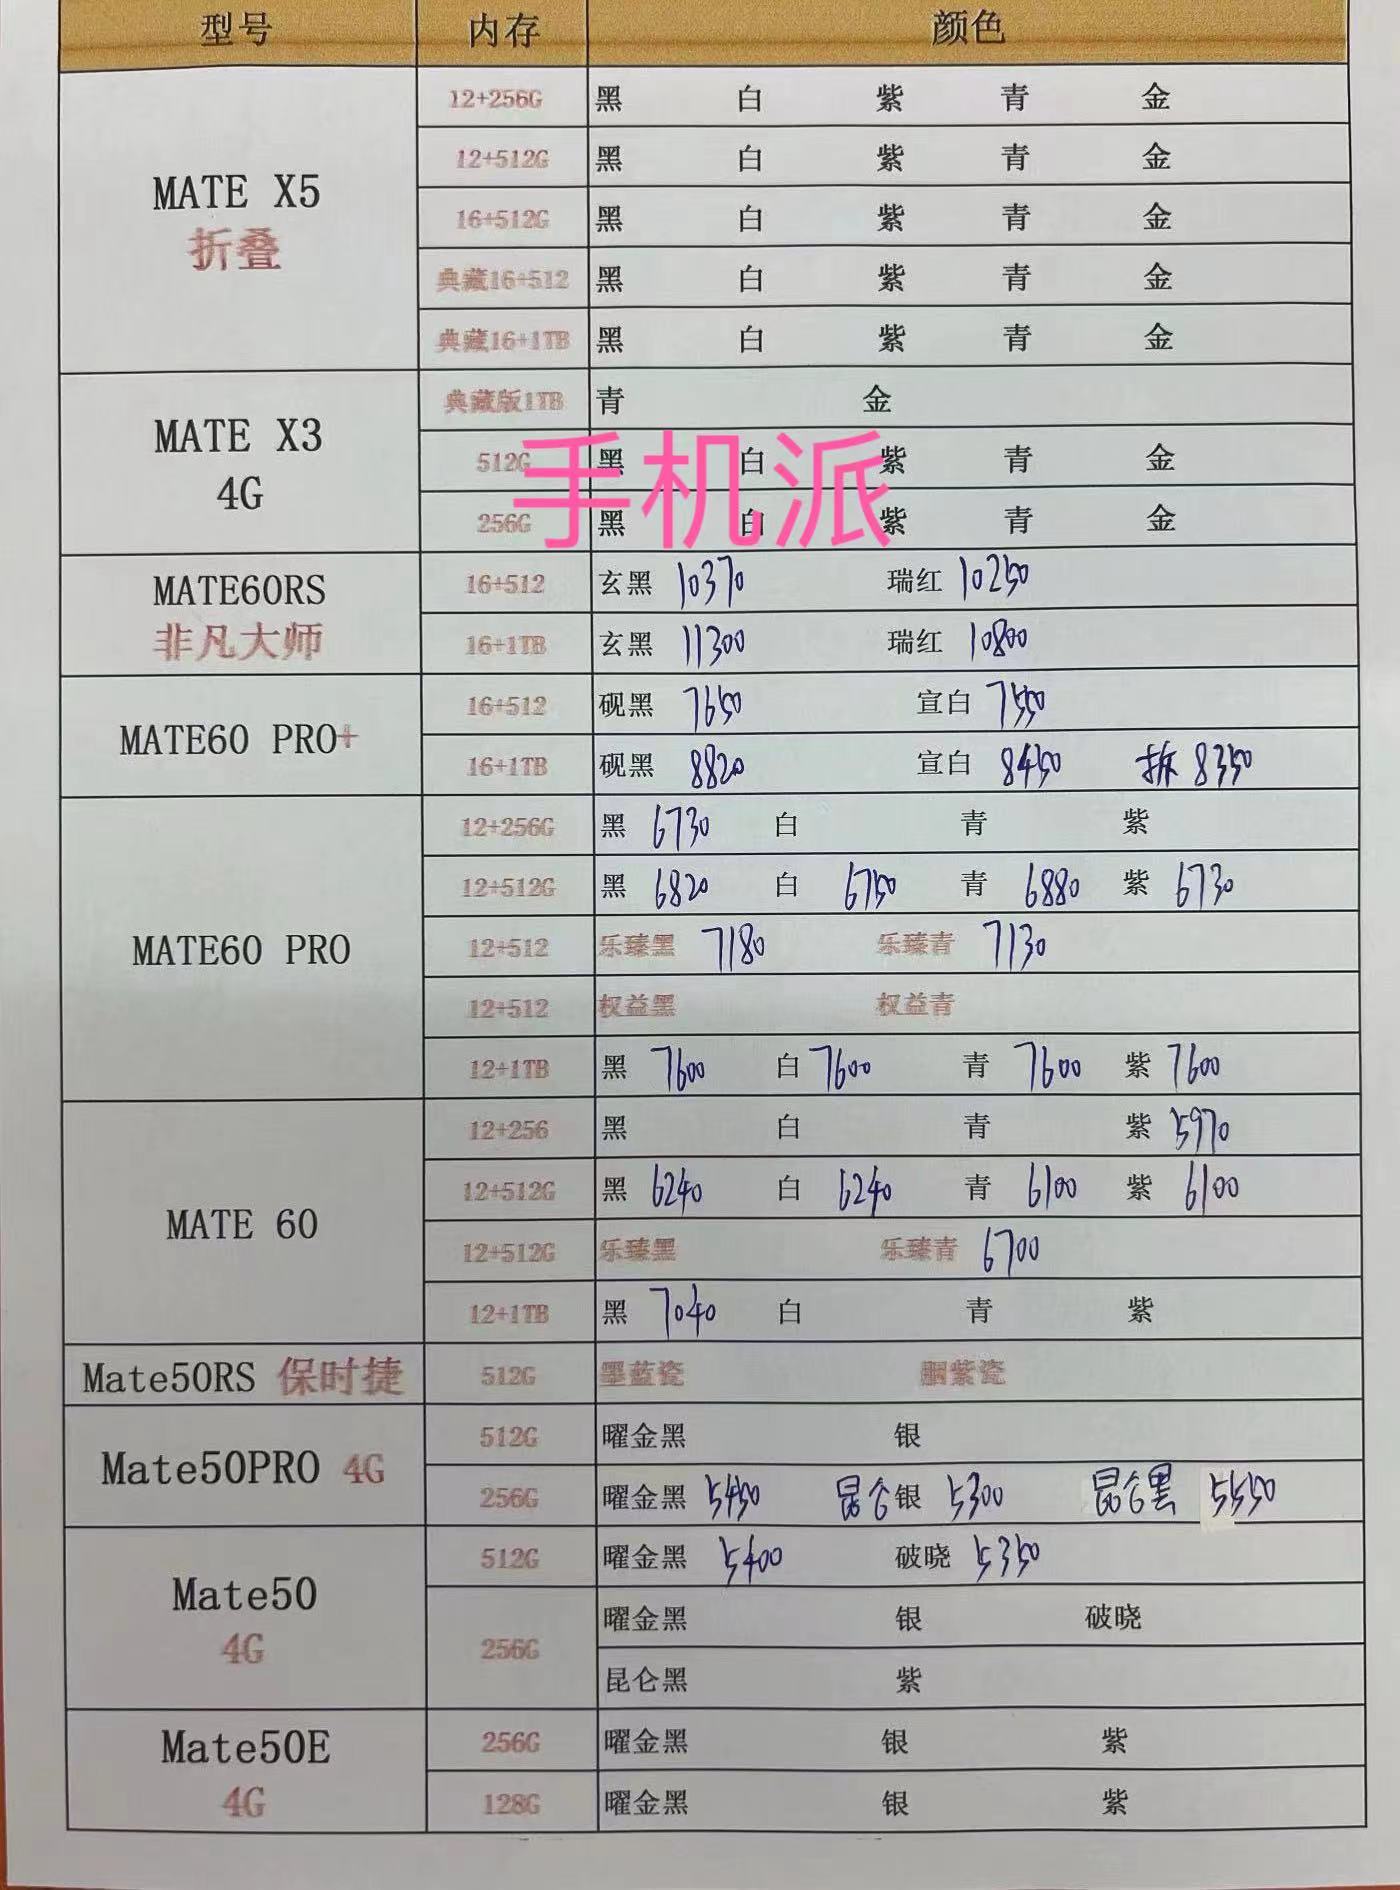 型号 内存 颜色
MATE X5
折叠
12+256G 黑 白 紫 青 金
12+512G 黑 白 紫 青 金
16+512G 黑 白 紫 青 金
典藏16+512 黑 白 紫 青 金
典藏16+1TB 黑 白 紫 青 金
MATE X3
4G
典藏版1TB 青 金
512G 黑 白 紫 青 金
手机派
256G 黑 白 紫 青 金
MATE60RS
非凡大师
16+512 玄黑 10370 瑞红 10250
16+1TB 玄黑 11300 瑞红 10800
MATE60 PRO+
16+512 砚黑 7650 宣白 7550
16+1TB 砚黑 8820 宣白 8450 拆 8350
MATE60 PRO
12+256G 黑 6730 白 青 紫
12+512G 黑 6820 白 6750 青 6880 紫 6730
12+512 乐臻黑 7180 乐臻青 7130
12+512 权益黑 权益青
12+1TB 黑 7600 白 7600 青 7600 紫 7600
MATE 60
12+256 黑 白 青 紫 5970
12+512G 黑 6240 白 6240 青 6100 紫 6100
12+512G 乐臻黑 乐臻青 6700
12+1TB 黑 7040 白 青 紫
Mate50RS 保时捷 512G 墨蓝瓷 胭紫瓷
Mate50PRO 4G
512G 曜金黑 银
256G 曜金黑 5450 昆仑银 5300 昆仑黑 5550
Mate50
4G
512G 曜金黑 5400 破晓 5350
256G 曜金黑 银 破晓
昆仑黑 紫
Mate50E
4G
256G 曜金黑 银 紫
128G 曜金黑 银 紫